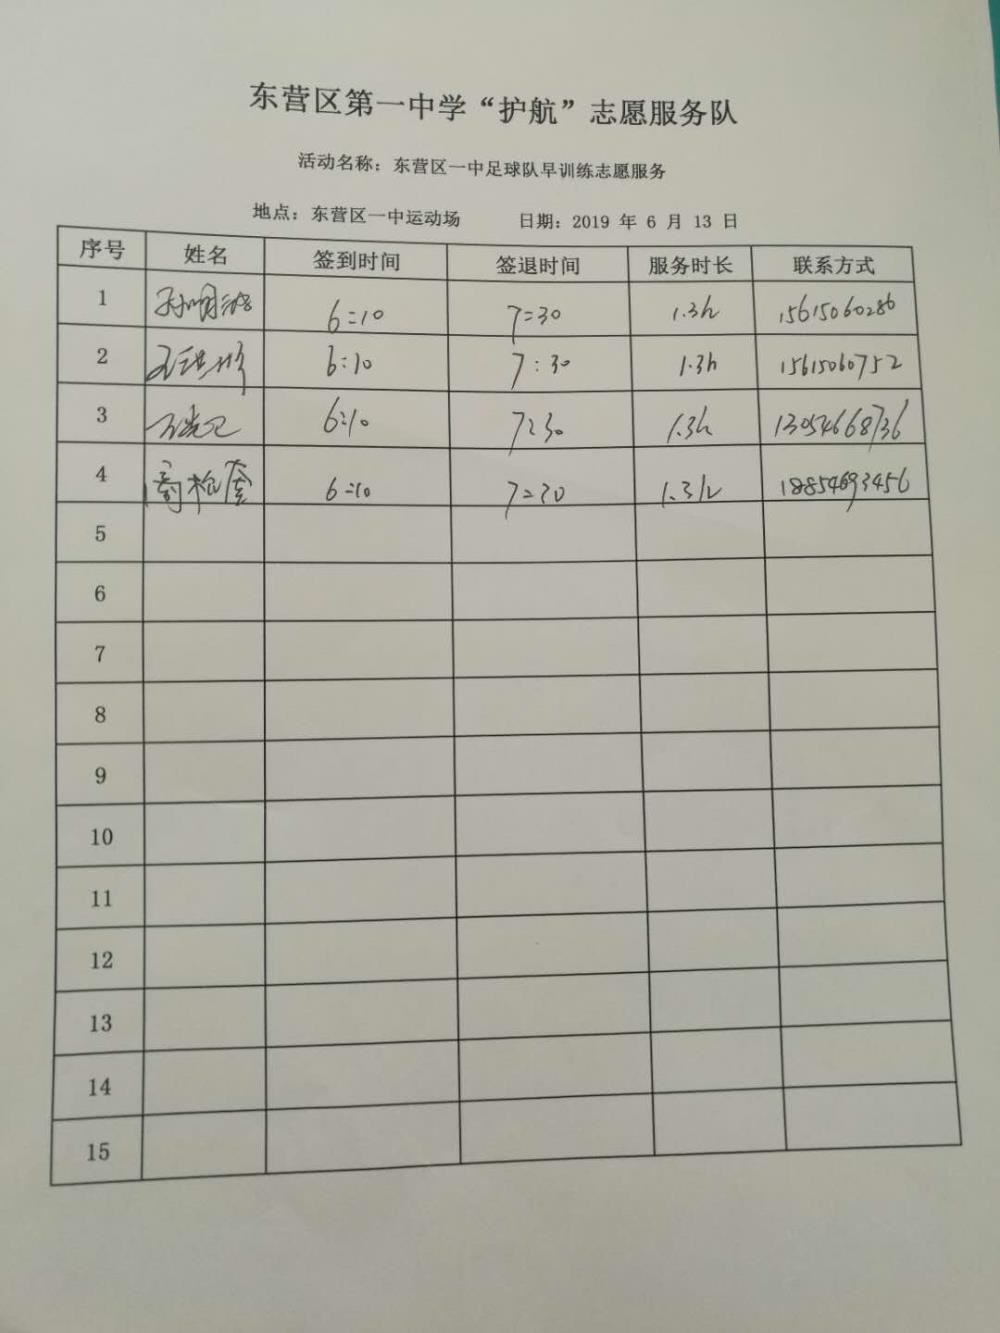 东营区第一中学“护航”志愿服务队
活动名称：东营区一中足球队早训练志愿服务
地点：东营区一中运动场 日期：2019 年 6 月 13 日
序号 姓名 签到时间 签退时间 服务时长 联系方式
1 6:10 7:30 1.3h 15615060286
2 6:10 7:30 1.3h 15615060752
3 6:10 7:30 1.3h 13054668736
4 6:10 7:30 1.3h 18854693456
5
6
7
8
9
10
11
12
13
14
15